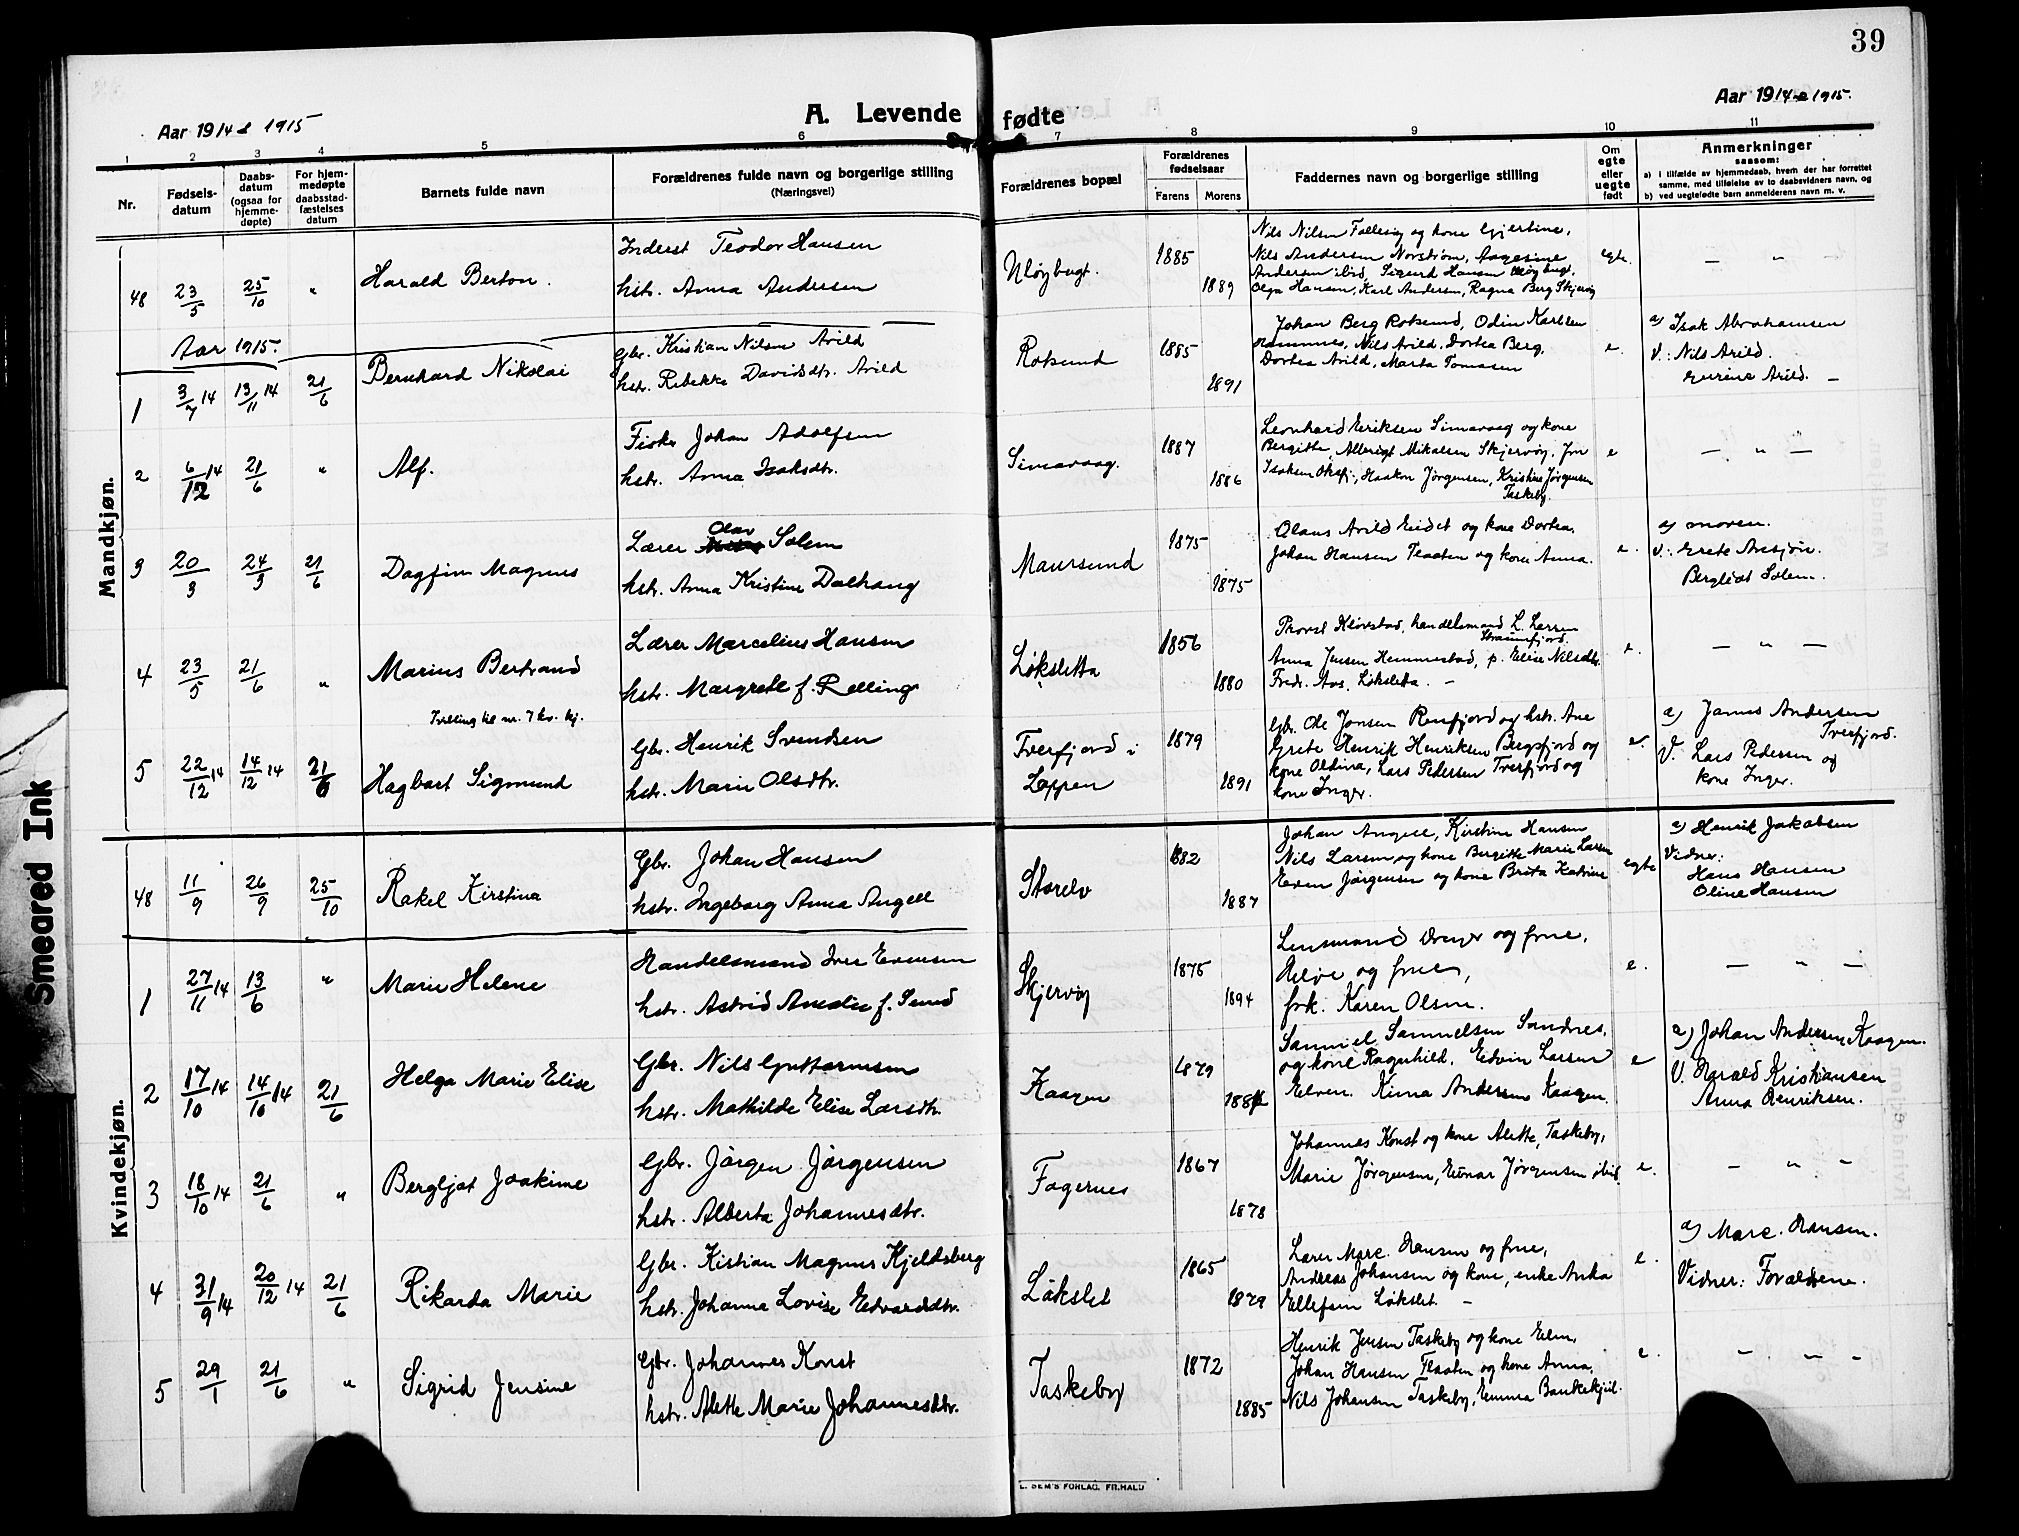 39
Aar 1914 & 1915
A. Levende fødte
Aar 1914 & 1915.
1 2 3 4 5 6 7 8 9 10 11
Nr.
Fødsels-
datum
Daabs-
datum
(ogsaa for
hjemme-
døpte)
For hjem-
medøpte
daabsstad-
fæstelses
datum
Barnets fulde navn
Forældrenes fulde navn og borgerlige stilling
(Næringsvei)
Forældrenes bopæl
Forældrenes
fødselsaar
Farens Morens
Faddernes navn og borgerlige stilling
Om
egte
eller
uegte
født
Anmerkninger
saasom:
a) i tilfælde av hjemmedaab, hvem der har forrettet
samme, med tilføielse av to daabsvidners navn, og
b) ved uegtefødte barn anmelderens navn m. v.
Mandkjøn.
48 23/5 25/10 " Harald Berton.
Inderst Teodor Hansen
hstr. Anna Andersen
Uløybugt. 1885 1889
Nils Nilsen Follesøy og kone Gjertine,
Nils Andersen Norstrøm, Aagesine
Andersen ibid, Sigurd Hansen Uløybugt,
Olga Hansen, Karl Andersen, Ragna Berg Skjervøy
egte. — " —
Aar 1915.
1 3/7 14 13/11 14 21/6 Bernhard Nikolai
Gbr. Kristian Nilsen Arild
hstr. Rebekke Davidsdtr. Arild
Rotsund 1885 1891
Johan Berg Rotsund, Odin Karlsen
Nils Arild, Dortea Berg,
Dortea Arild, Marta Tomasen
e.
a) Isak Abrahamsen
V.: Nils Arild.
Eurine Arild. —
2 6/12 14 21/6 " Alf.
Fisker Johan Adolfsen
hstr. Anna Isaksdtr.
Simavaag. 1887 1886
Leonhard Eriksen Simavaag og kone
Bergitte, Albrigt Mikalsen Skjervøy, fru
Isaksen Oksfj., Haakon Jørgensen, Kristine Jørgensen
Taskeby.
e — " —
3 20/3 24/3 21/6 Dagfinn Magnus
Olav
Lærer Solem
hstr. Anna Kristine Dalhaug
Maursund 1875 1875
Olaus Arild Eidet og kone Dortea.
Johan Hansen Flaaten og kone Anna.
e.
a) moren.
V.: Grete Aresjön.
Bergliot Solem.
4 23/5 21/6 " Marius Bertrand
Lærer Marcelius Hansen
hstr. Margrete f. Relling
Løksletta 1856 1880
Provst Kløvstad, handelsmand L. Larsen
Straumfjord.
Anna Jensen Hemmestad, p. Elise Nilsdtr.
Fredr. Aas, Løksletta. —
e. — " —
Tvilling til nr. 7 kv. kj.
5 22/12 14 14/12 14 21/6 Hagbart Sigmund
Gbr. Henrik Svendsen
hstr. Marie Olsdtr.
Tverfjord i
Loppen 1879 1891
Gbr. Ole Jonsen Rensfjord og hstr. Ane
Grete Henrik Henriksen Bergsfjord og
kone Oldina, Lars Pedersen Tverfjord og
kone Inger.
e.
a) James Andersen
Tverfjord.
V. Lars Pedersen og
kone Inger.
Kvindekjøn.
48 11/9 26/9 25/10 Rakel Kirstina
Gbr. Johan Hansen
hstr. Ingeborg Anna Angell
Storelv 1882 1887
Johan Angell, Kirstine Hansen
Nils Larsen og kone Bergitte Marie Larsen
Even Jørgensen og kone Brita Katrine
egte
a) Henrik Jakobsen
Vidner:
Hans Hansen
Oline Hansen
1 27/11 14 13/6 " Marie Helene
Handelsmand Iver Evensen
hstr. Astrid Amalie f. Sund
Skjervøy 1875 1894
Lensmand Dreyer og frue,
og frue,
frk. Karen Olsen.
e. — " —
2 17/10 14 14/10 14 21/6 Helga Marie Elise
Gbr. Nils Guttormsen
hstr. Mathilde Elise Larsdtr.
Kaagen 1879
Samuel Samuelsen Sandnes,
og kone Ragnhild, Edvin Larsen
Elven. Kima Andersen Kaagen.
e
a) Johan Andersen Kaagen.
V. Harald Kristiansen
Anna Henriksen.
3 18/10 14 21/6 " Bergljot Joakime
Gbr. Jørgen Jørgensen
hstr. Alberta Johannesdtr.
Fagernes 1867 1878
Johannes Konst og kone Alette, Taskeby,
Marie Jørgensen, Einar Jørgensen ibid.
e. — " —
4 31/9 14 20/12 14 21/6 Rikarda Marie
Gbr. Kistian Magnus Kjeldsberg
hstr. Johanna Lovise Edvardsdtr.
Løkslet 1865 1879
Lærer Marc. Hansen og frue,
Andreas Johansen og kone, enke Anka
Ellefsen Løkslet. —
e.
a) Marc. Hansen.
Vidner: Forældrene.
5 29/1 21/6 " Sigrid Jensine
Gbr. Johannes Konst
hstr. Alette Marie Johannesdtr.
Taskeby 1872 1885
Henrik Jensen Taskeby og kone Elen,
Johan Hansen Flaaten og kone Anna,
Nils Johansen Taskeby, Emma Bankekjil.
e. — " —
E. SEM'S FORLAG. FR.HALD
Smeared Ink